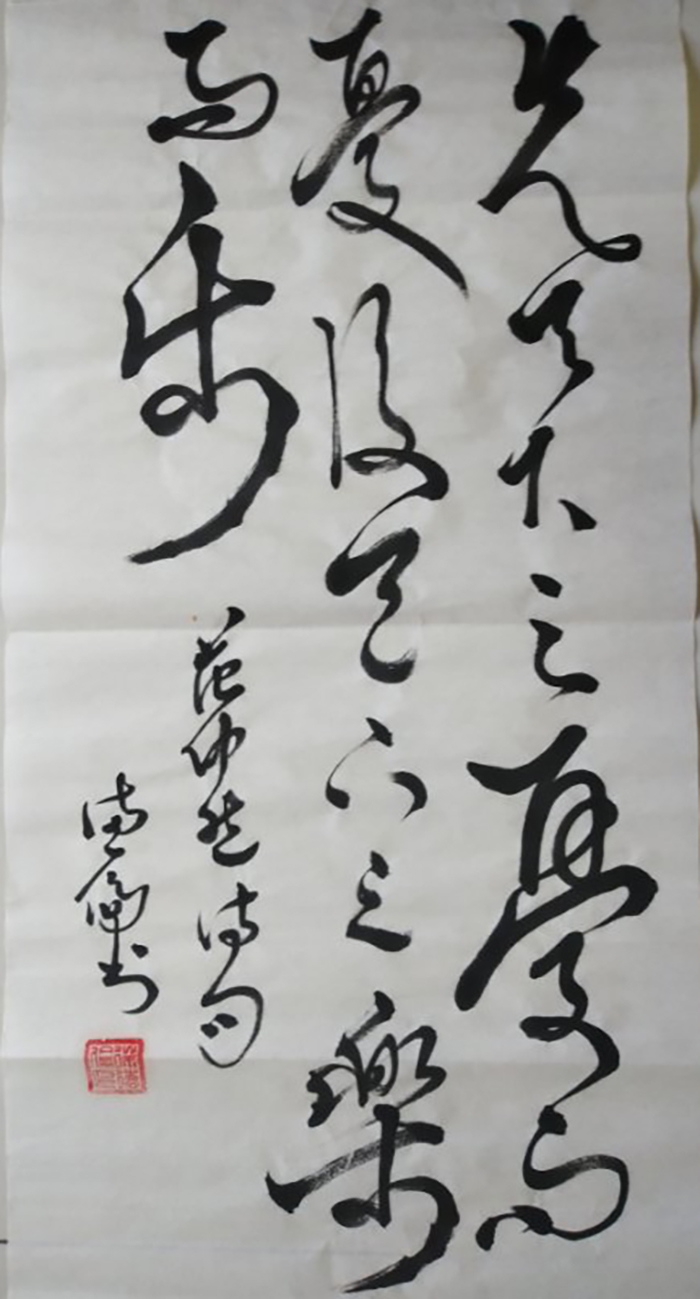 先天下之憂而
憂後天下之樂
而乐
范仲淹诗句
书